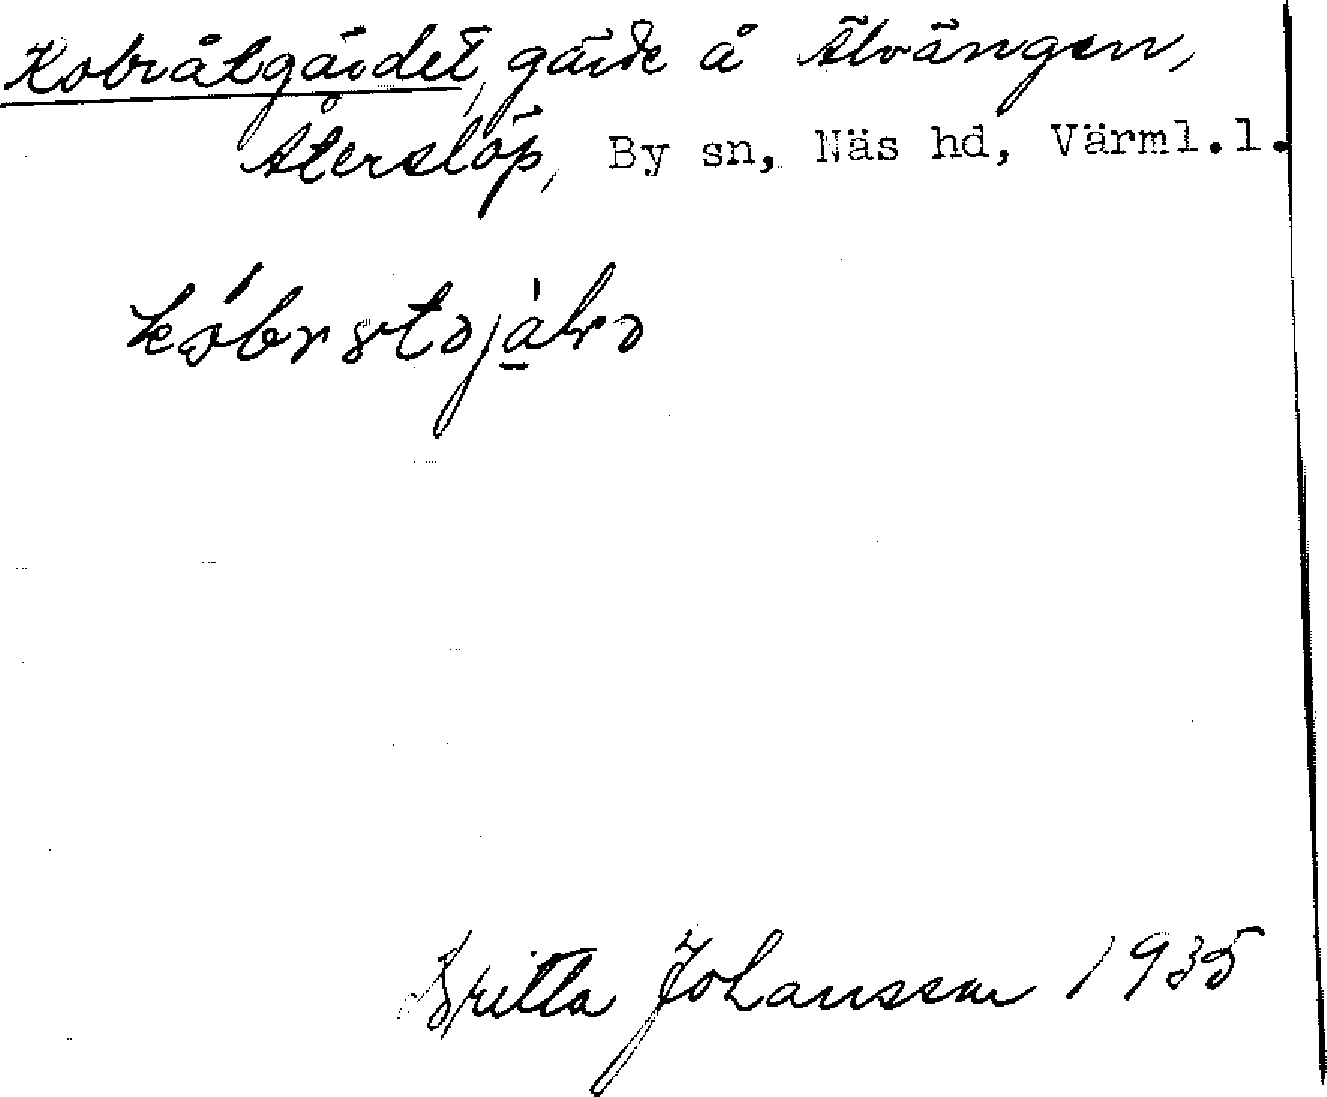 Kobråtgärdet, gärde å Älvängen,
Återslöp, By sn, Näs hd, Värml.l.
Britta Johansson 1935